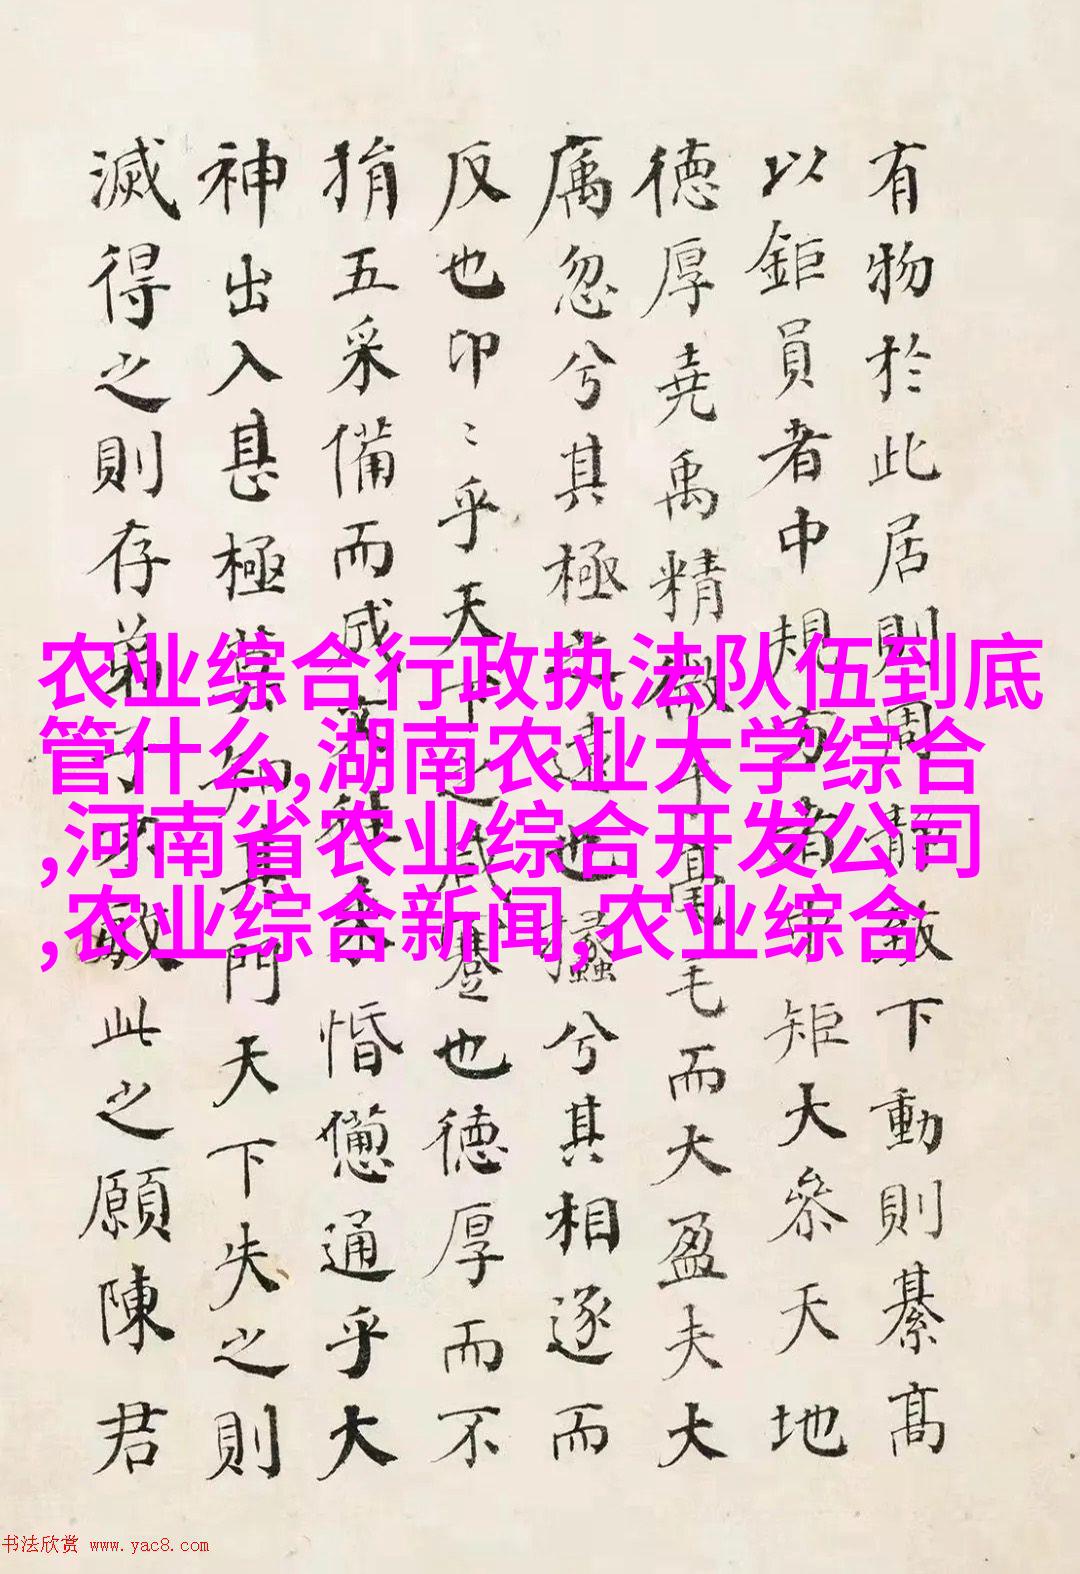 有物於此居則周靜致下動則綦高
以鉅員者中規方者中矩大參天地
德厚堯禹精微乎毫毛而大盈夫大
厲忽兮其極之遠也攭兮其相逐而
反也卬〻乎天下之咸蹇也德厚而不
捐五采備而成文往來惛憊通乎大
神出入甚極莫知其門天下失之則
滅得之則存弟子不敏此之願陳君
农业综合行政执法队伍到底
管什么,湖南农业大学综合
,河南省农业综合开发公司
,农业综合新闻,农业综合
书法欣赏 www.yac8.com